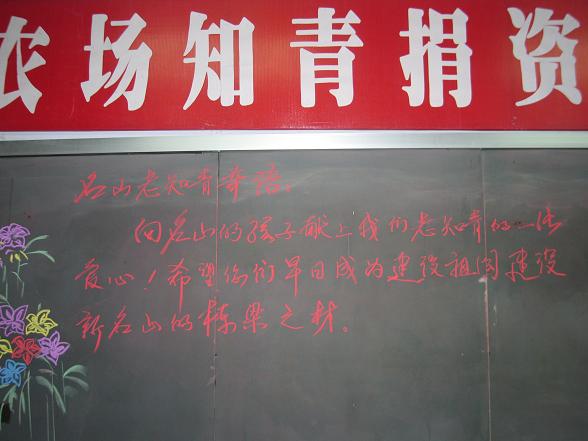 农场知青捐资
名山老知青寄语:
向名山的孩子献上我们老知青的一片
爱心！希望你们早日成为建设祖国建设
新名山的栋梁之材。